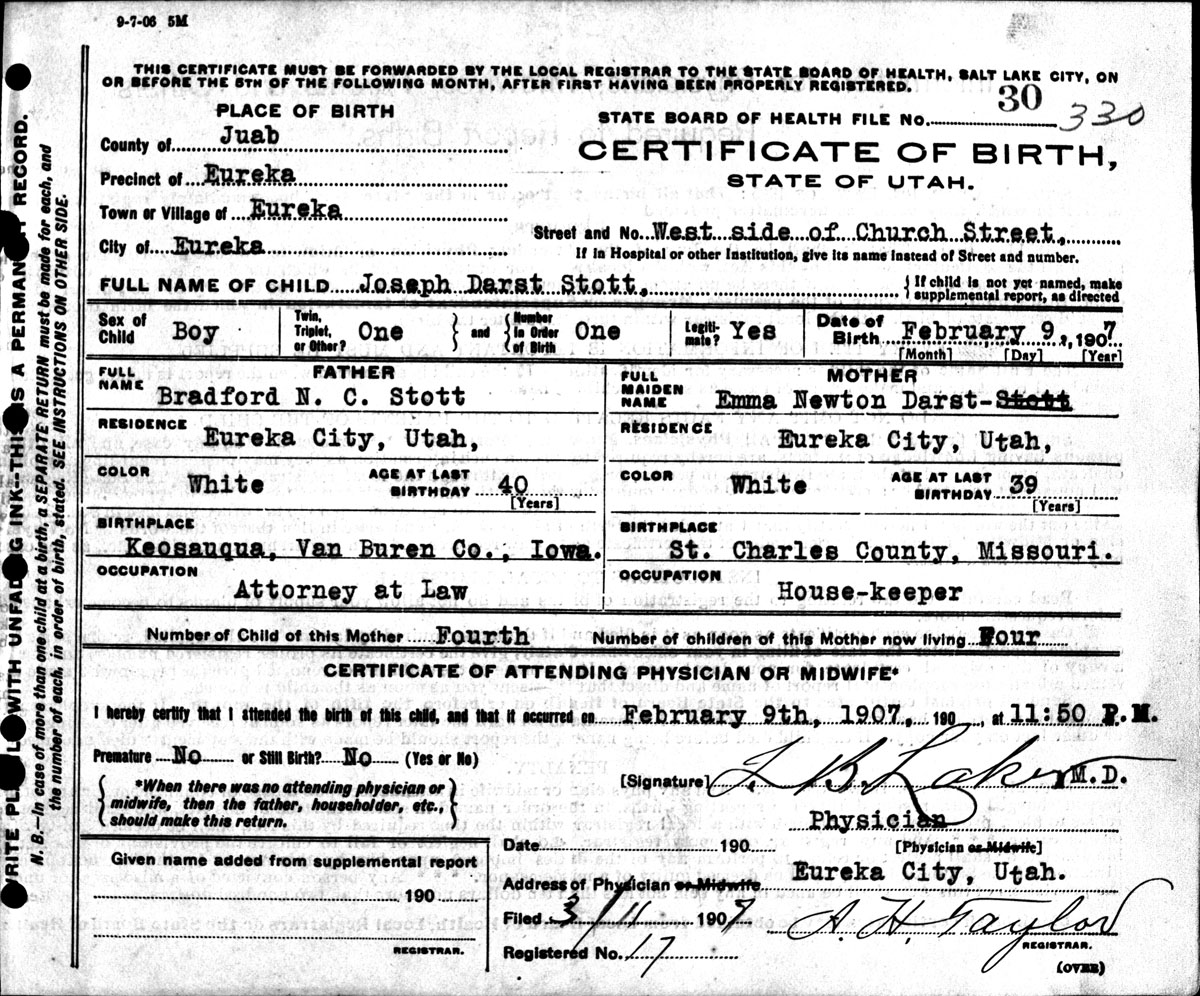 9-7-06 5M
THIS CERTIFICATE MUST BE FORWARDED BY THE LOCAL REGISTRAR TO THE STATE BOARD OF HEALTH, SALT LAKE CITY, ON
OR BEFORE THE 5TH OF THE FOLLOWING MONTH, AFTER FIRST HAVING BEEN PROPERLY REGISTERED.
PLACE OF BIRTH
County of Juab
Precinct of Eureka
Town or Village of Eureka
City of Eureka
30
STATE BOARD OF HEALTH FILE No. 330
CERTIFICATE OF BIRTH,
STATE OF UTAH.
Street and No. West side of Church Street,
If in Hospital or other Institution, give its name instead of Street and number.
FULL NAME OF CHILD Joseph Darst Stott, { If child is not yet named, make
supplemental report, as directed
Sex of Child Boy Twin, Triplet, or Other? One } and { Number in Order of Birth One Legiti-mate? Yes Date of Birth February 9, 1907
[Month] [Day] [Year]
FATHER
FULL NAME Bradford N. C. Stott
RESIDENCE Eureka City, Utah,
COLOR White AGE AT LAST BIRTHDAY 40
[Years]
BIRTHPLACE
Keosauqua, Van Buren Co., Iowa.
OCCUPATION
Attorney at Law
MOTHER
FULL MAIDEN NAME Emma Newton Darst-Stott
RESIDENCE Eureka City, Utah,
COLOR White AGE AT LAST BIRTHDAY 39
[Years]
BIRTHPLACE
St. Charles County, Missouri.
OCCUPATION
House-keeper
Number of Child of this Mother Fourth Number of children of this Mother now living Four
CERTIFICATE OF ATTENDING PHYSICIAN OR MIDWIFE*
I hereby certify that I attended the birth of this child, and that it occurred on February 9th, 1907, 190 , at 11:50 P.M.
Premature No or Still Birth? No (Yes or No)
{ *When there was no attending physician or
midwife, then the father, householder, etc.,
should make this return. }
[Signature] M.D.
Physician
Date 190 [Physician or Midwife]
Address of Physician or Midwife Eureka City, Utah.
Filed 3/11 1907 A. H. Taylor
REGISTRAR.
Registered No. 17
(OVER)
Given name added from supplemental report
190
REGISTRAR.
WRITE PLA WITH UNFAD INK--THIS IS A PERMAN RECORD.
N. B.—In case of more than one child at a birth, a SEPARATE RETURN must be made for each, and
the number of each, in order of birth, stated. SEE INSTRUCTIONS ON OTHER SIDE.